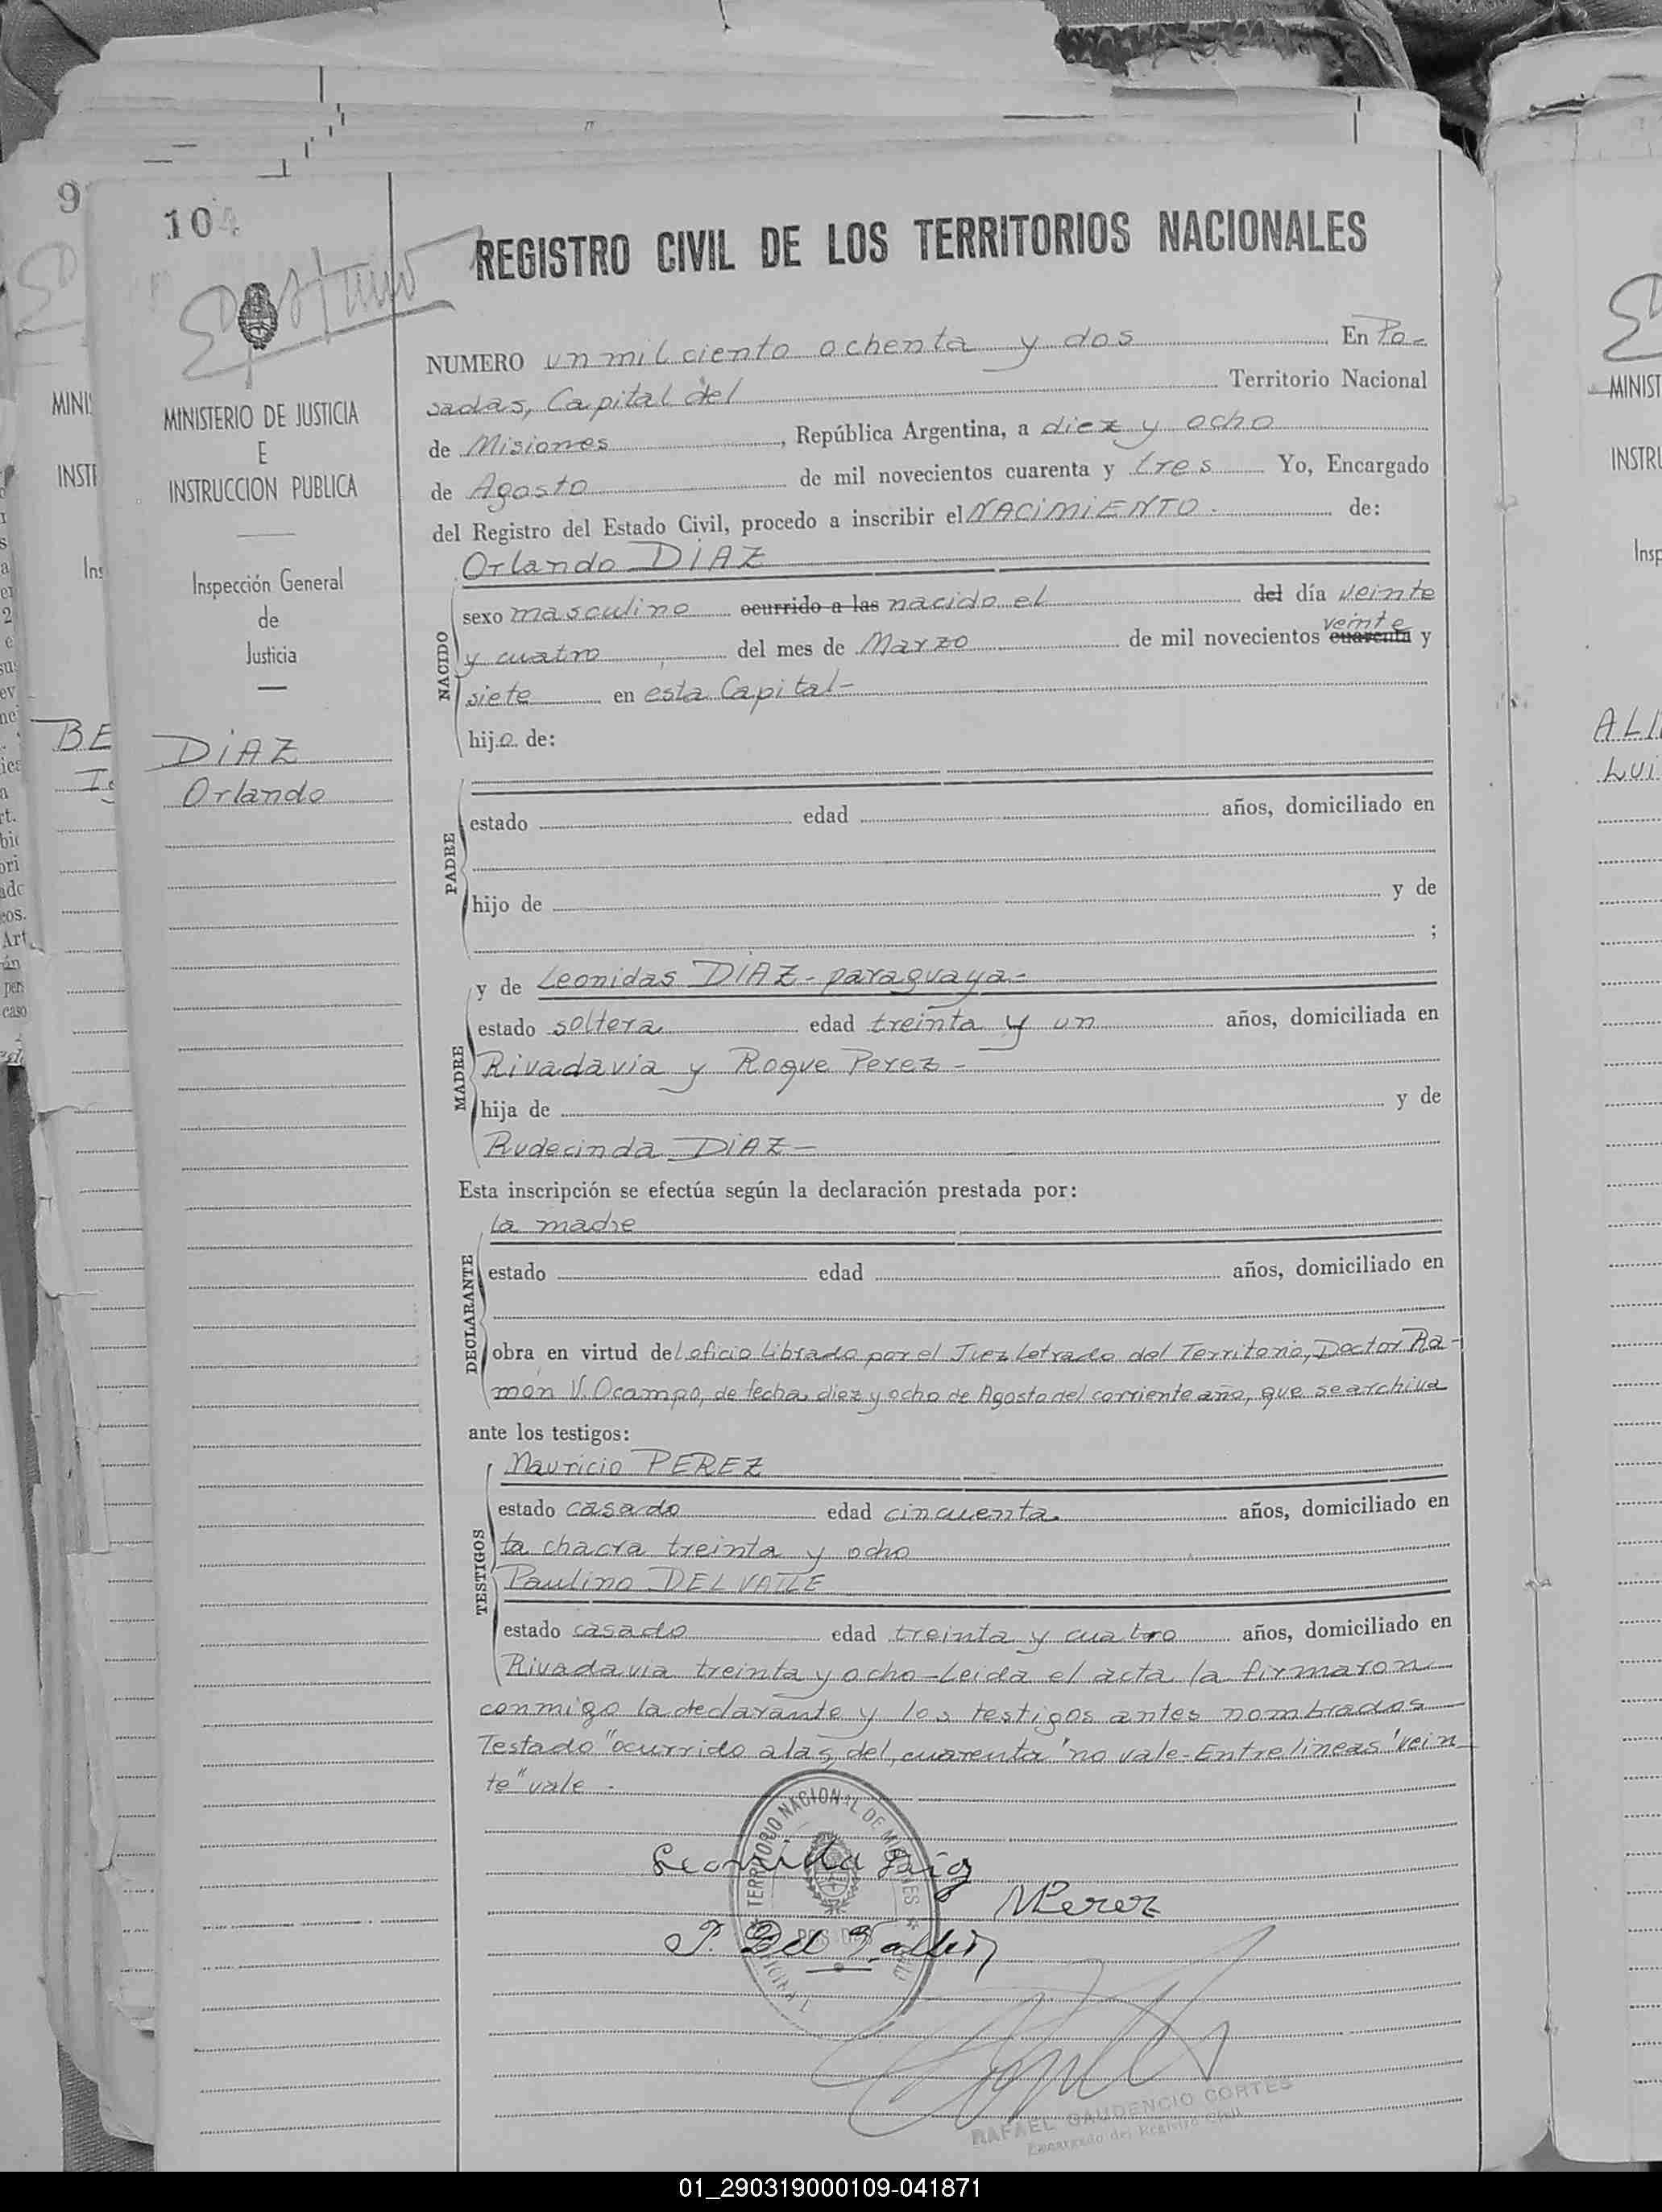 9
104
REGISTRO CIVIL DE LOS TERRITORIOS NACIONALES
MINISTERIO DE JUSTICIA
E
INSTRUCCION PUBLICA
Inspección General
de
Justicia
DIAZ
Orlando
NUMERO un mil ciento ochenta y dos En Po-
sadas, Capital del Territorio Nacional
de Misiones, República Argentina, a diez y ocho
de Agosto de mil novecientos cuarenta y tres Yo, Encargado
del Registro del Estado Civil, procedo a inscribir el NACIMIENTO.- de:
Orlando DIAZ
NACIDO
sexo masculino ocurrido a las nacido el del día veinte
veinte
y cuatro del mes de Marzo de mil novecientos cuarenta y
siete en esta Capital-
hijo de:
PADRE
estado edad años, domiciliado en
hijo de y de
;
MADRE
y de Leonidas DIAZ- paraguaya-
estado soltera edad treinta y un años, domiciliada en
Rivadavia y Roque Perez-
hija de y de
Rudecinda DIAZ-
Esta inscripción se efectúa según la declaración prestada por:
la madre
DECLARANTE
estado edad años, domiciliado en
obra en virtud del oficio librado por el Juez Letrado del Territorio, Doctor Ra-
món V. Ocampo, de fecha diez y ocho de Agosto del corriente año, que se archiva
ante los testigos:
TESTIGOS
Mauricio PEREZ
estado casado edad cincuenta años, domiciliado en
la chacra treinta y ocho
Paulino DEL VALLE
estado casado edad treinta y cuatro años, domiciliado en
Rivadavia treinta y ocho-Leida el acta la firmaron
conmigo la declarante y los testigos antes nombrados
Testado "ocurrido a las, del, cuarenta" no vale-Entre lineas "vein
te" vale.
TERRITORIO NACIONAL DE MISIONES
Leonida Diaz
MPerez
P. Del Valle
RAFAEL GAUDENCIO CORTES
Encargado del Registro Civil
MINIS
INSTR
Insp
BE
ALI
Lui
01_290319000109-041871